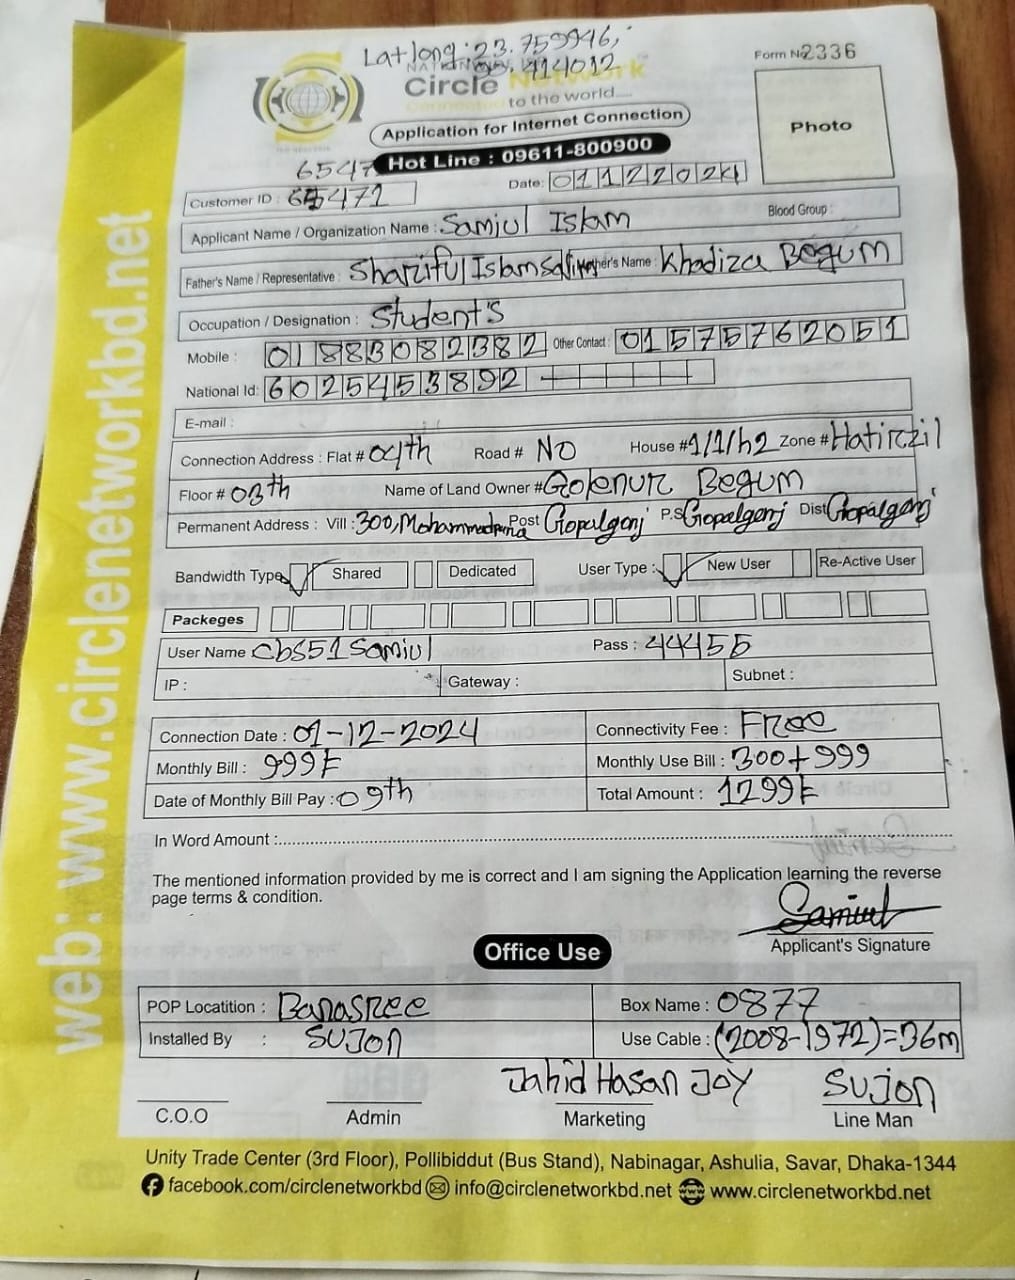 Lat long: 23.759946,
90.414012
Form No 2336
Circle Network
to the world....
Application for Internet Connection
Photo
Hot Line : 09611-800900
6547
Date: 01122024
Customer ID : 65472
Applicant Name / Organization Name : Samiul Islam Blood Group :
Father's Name / Representative : Shariful Islam Mother's Name : Khadiza Begum
Occupation / Designation : Student's
Mobile : 01883082382 Other Contact : 01575762051
National Id: 6025453892
E-mail :
Connection Address : Flat # 04th Road # NO House # 1/1/h2 Zone # Hatirzil
Floor # 03th Name of Land Owner # Golenur Begum
Permanent Address : Vill : 300, Mohammadpura Post Gopalgonj P.S Gopalgonj Dist Gopalgonj
Bandwidth Type Shared Dedicated User Type : New User Re-Active User
Packeges
User Name cbs51samiul Pass : 44455
IP : Gateway : Subnet :
Connection Date : 01-12-2024 Connectivity Fee : Free
Monthly Bill : 999৳ Monthly Use Bill : 300+999
Date of Monthly Bill Pay : 09th Total Amount : 1299৳
In Word Amount :
The mentioned information provided by me is correct and I am signing the Application learning the reverse
page terms & condition.
Samiul
Applicant's Signature
Office Use
POP Locatition : Banasree Box Name : 0877
Installed By : SUJON Use Cable : (2008-1972)=36m
Jahid Hasan Joy Sujon
C.O.O Admin Marketing Line Man
Unity Trade Center (3rd Floor), Pollibiddut (Bus Stand), Nabinagar, Ashulia, Savar, Dhaka-1344
facebook.com/circlenetworkbd info@circlenetworkbd.net www.circlenetworkbd.net
web: www.circlenetworkbd.net